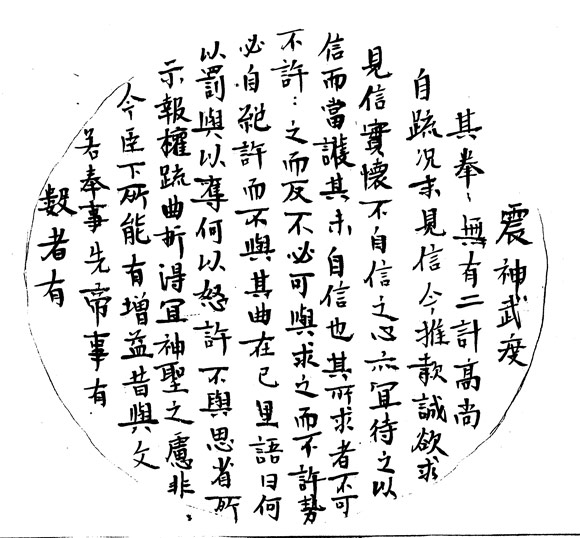 震神武度
其拳〻無有二計高尚
自疏况未見信今推款誠欲求
見信實懷不自信之心亦冝待之以
信而當護其未自信也其所求者不可
不許〻之而反不必可與求之而不許勢
必自絕許而不與其曲在己里語曰何
以罰與以奪何以怒許不與思省所
示報權疏曲折得冝神聖之慮非〻
今臣下所能有增益昔與文
若奉事先帝事有
數者有